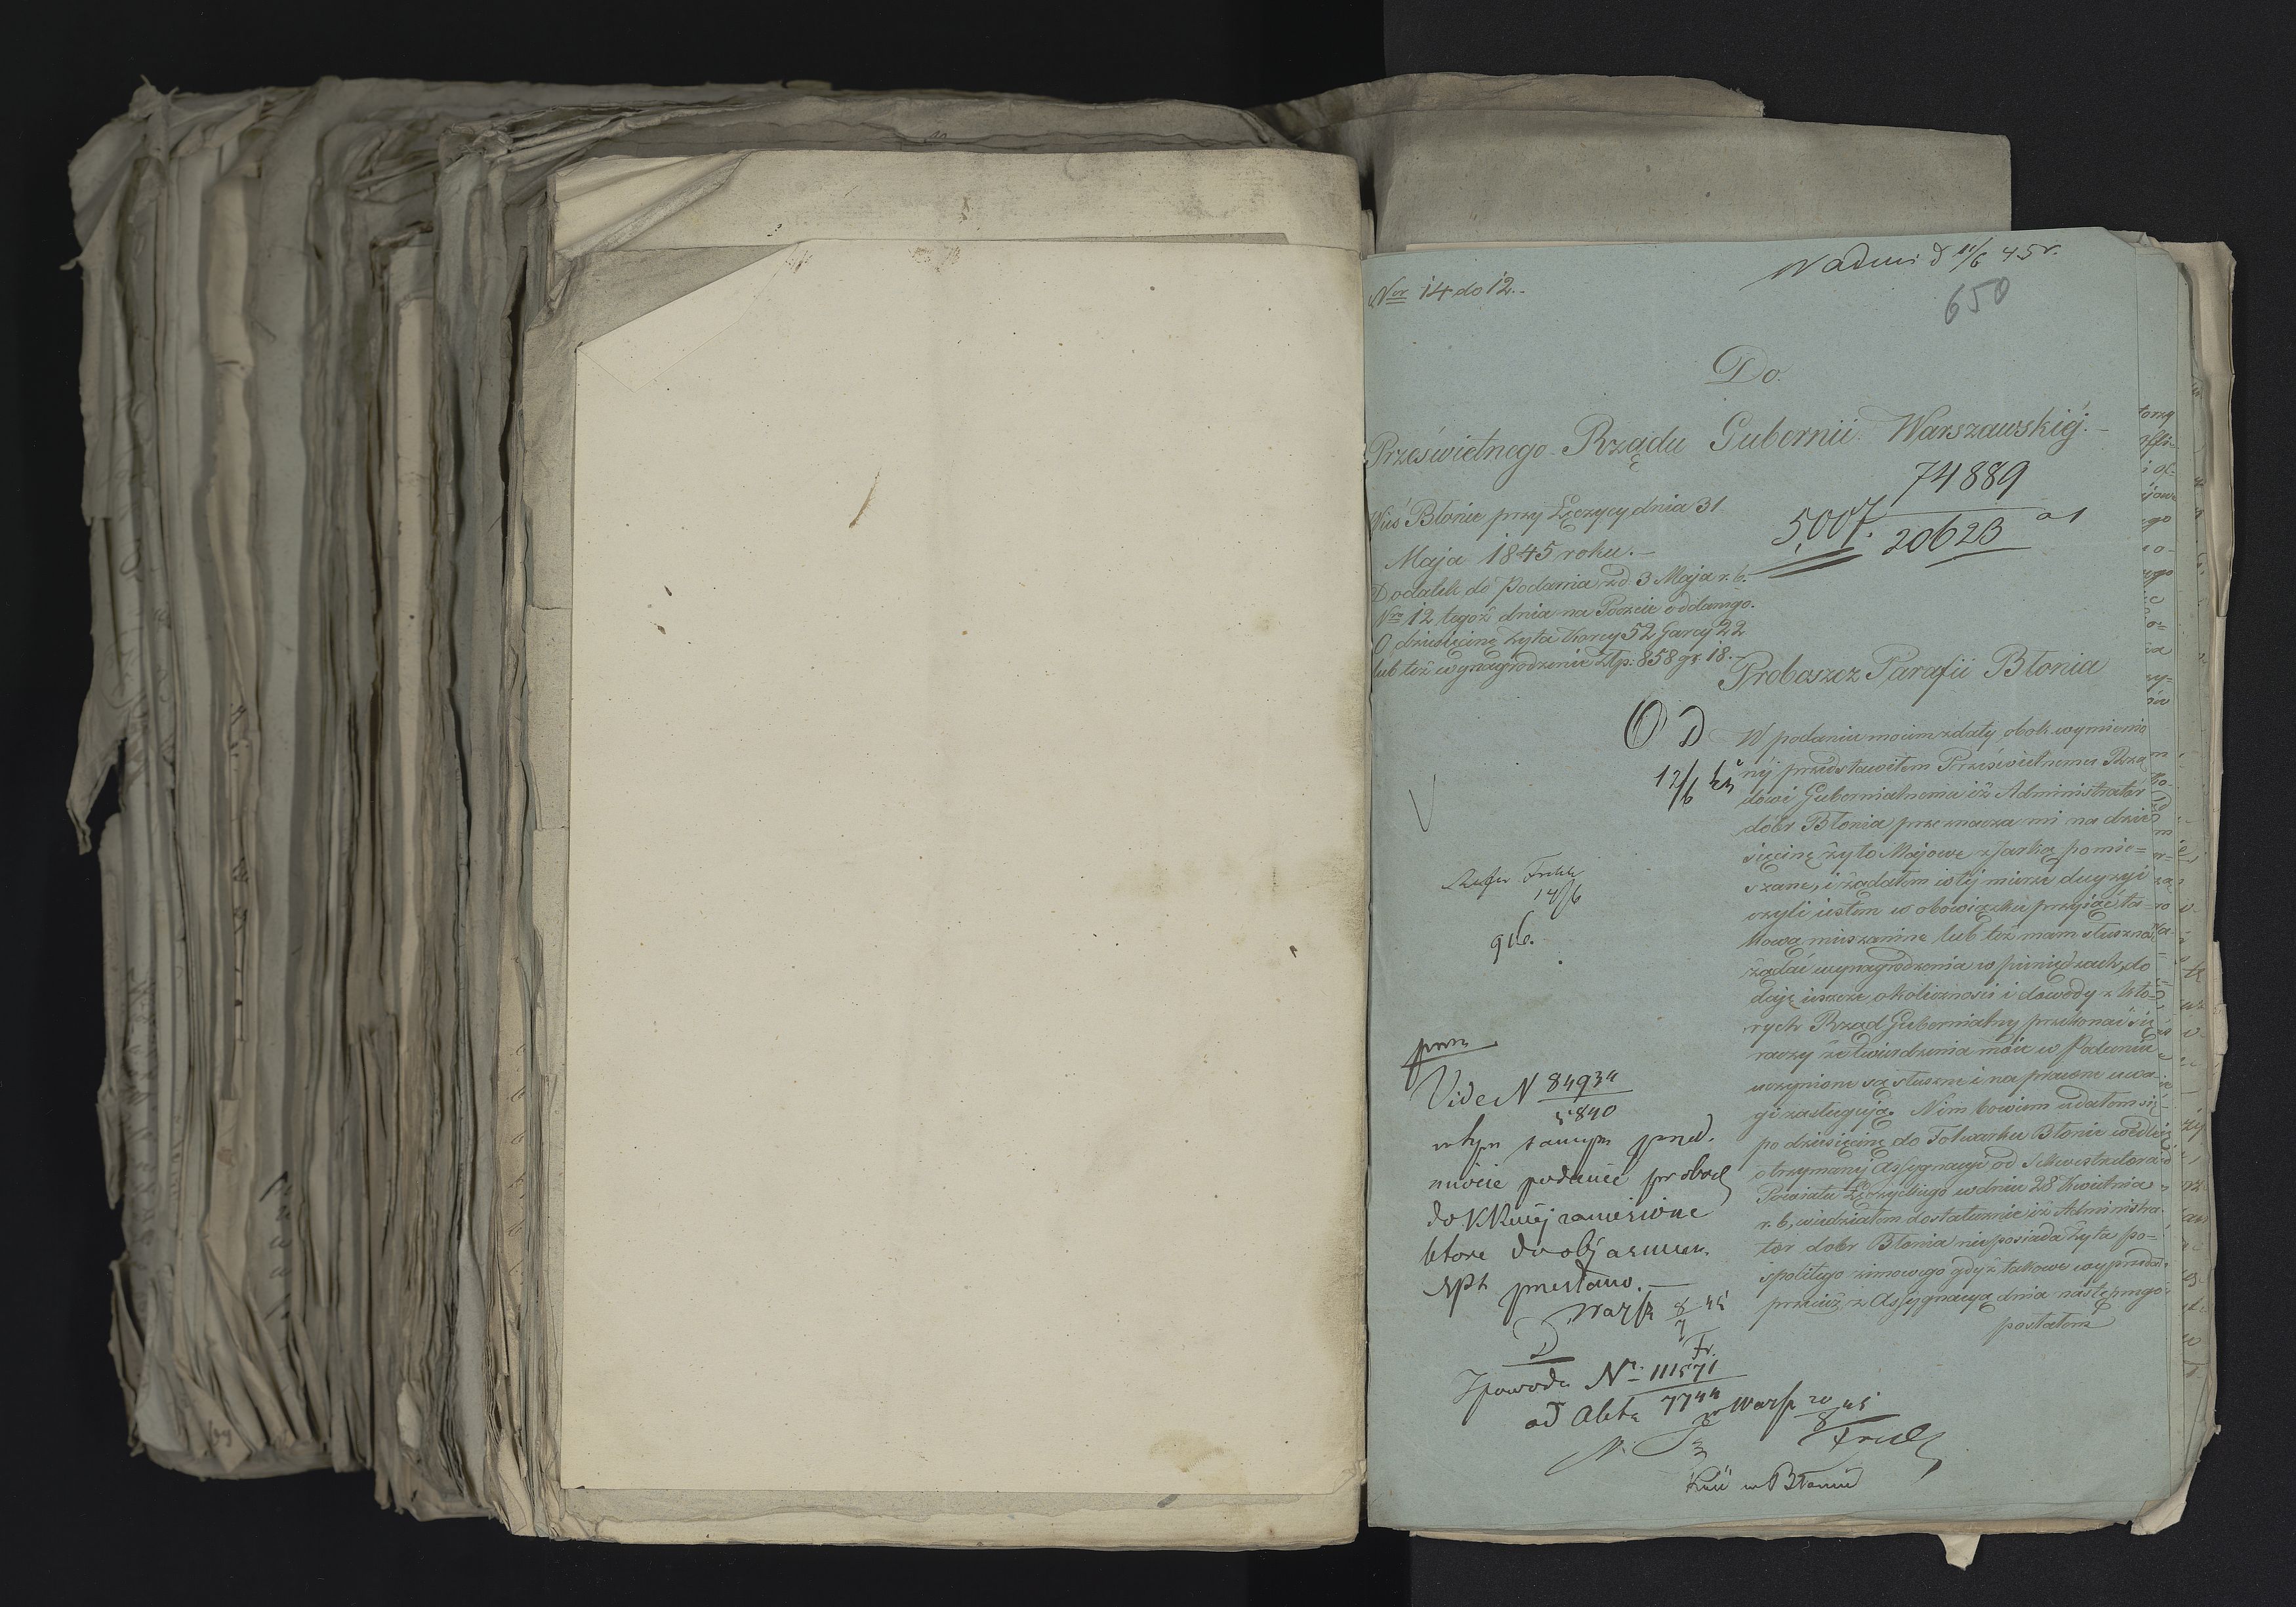 Nor 14 do 12.
Nadm: d 11/6 45 r.
650
Do
Prześwietnego Rządu Gubernii Warszawskiej.
74889
5,007. 20623
Wieś Błonie przy Łęczycy dnia 31
Maja 1845 roku.
Dodatek do podania z d. 3 Maja r. b.
Nro 12 tegoż dnia na Poczcie oddanego.
O dziesięcinę żyta Korcy 52 Garcy 22
lub też wynagrodzenie Złp. 858 gr. 18.
Proboszcz Parafii Błonia
W podaniu moim z daty obok wymienio
nej przedstawiłem Prześwietnemu Rzą
dowi Gubernialnemu iż Administrator
dóbr Błonia przeznacza mi na dzie
sięcinę żyto Majowe z Jarką pomie=
szane, i żądałem w tej mierze decyzyi
czyli jestem w obowiązku przyjąć ta=
kową mieszaninę lub też mam słuszność
żądać wynagrodzenia w pieniądzach, do
daję jeszcze okoliczności i dowody z któ=
rych Rząd Gubernialny przekonać się
raczy że twierdzenia moje w Podaniu
uczynione są słuszne i na prawne uwa=
gi zasługują. Nim bowiem udałem się
po dziesięcinę do Folwarku Błonie wedle
otrzymanej Assygnacyi od Sekwestratora
Powiatu Łęczyckiego w dniu 28 Kwietnia
r. b. wiedziałem dostatecznie iż Administra=
tor dobr Błonia nie posiada żyta po=
spolitego zimowego gdyż takowe wyprzedał
przecież z Assygnacyą dnia następnego
posłałem
O D
12/6
14/6
Vide N 84934
5840
w tym samym przed.
miocie podanie probo
do KRząd zaniesione
ktore do objasnien.
przesłano.
Warsz 8/7 45
Fr.
Z powodu Nr. 111571
7744
od Akt
Warsz 20/8 45
w Błoniu